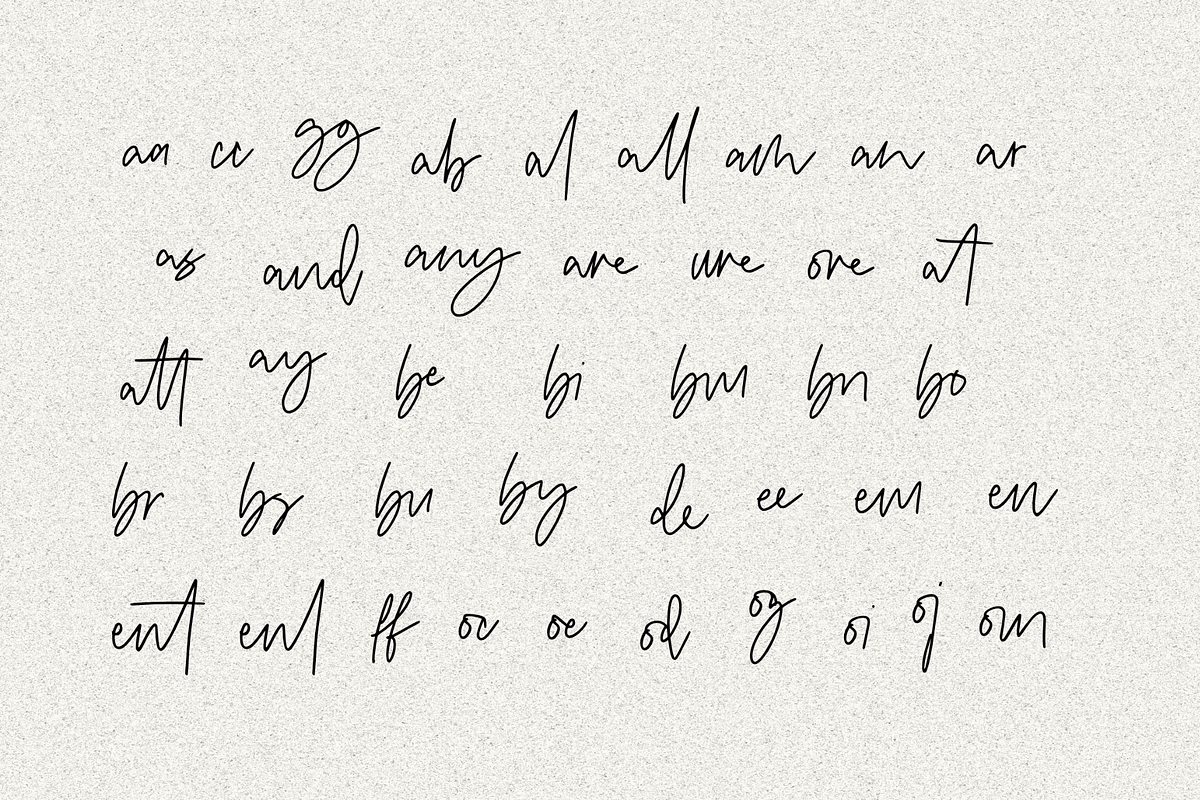 aa cc gg ab al all am an ar
as and any are ure ore at
att ay be bi bm bn bo
br bs bu by de ee em en
ent enl ff oc oe od og oi oj om